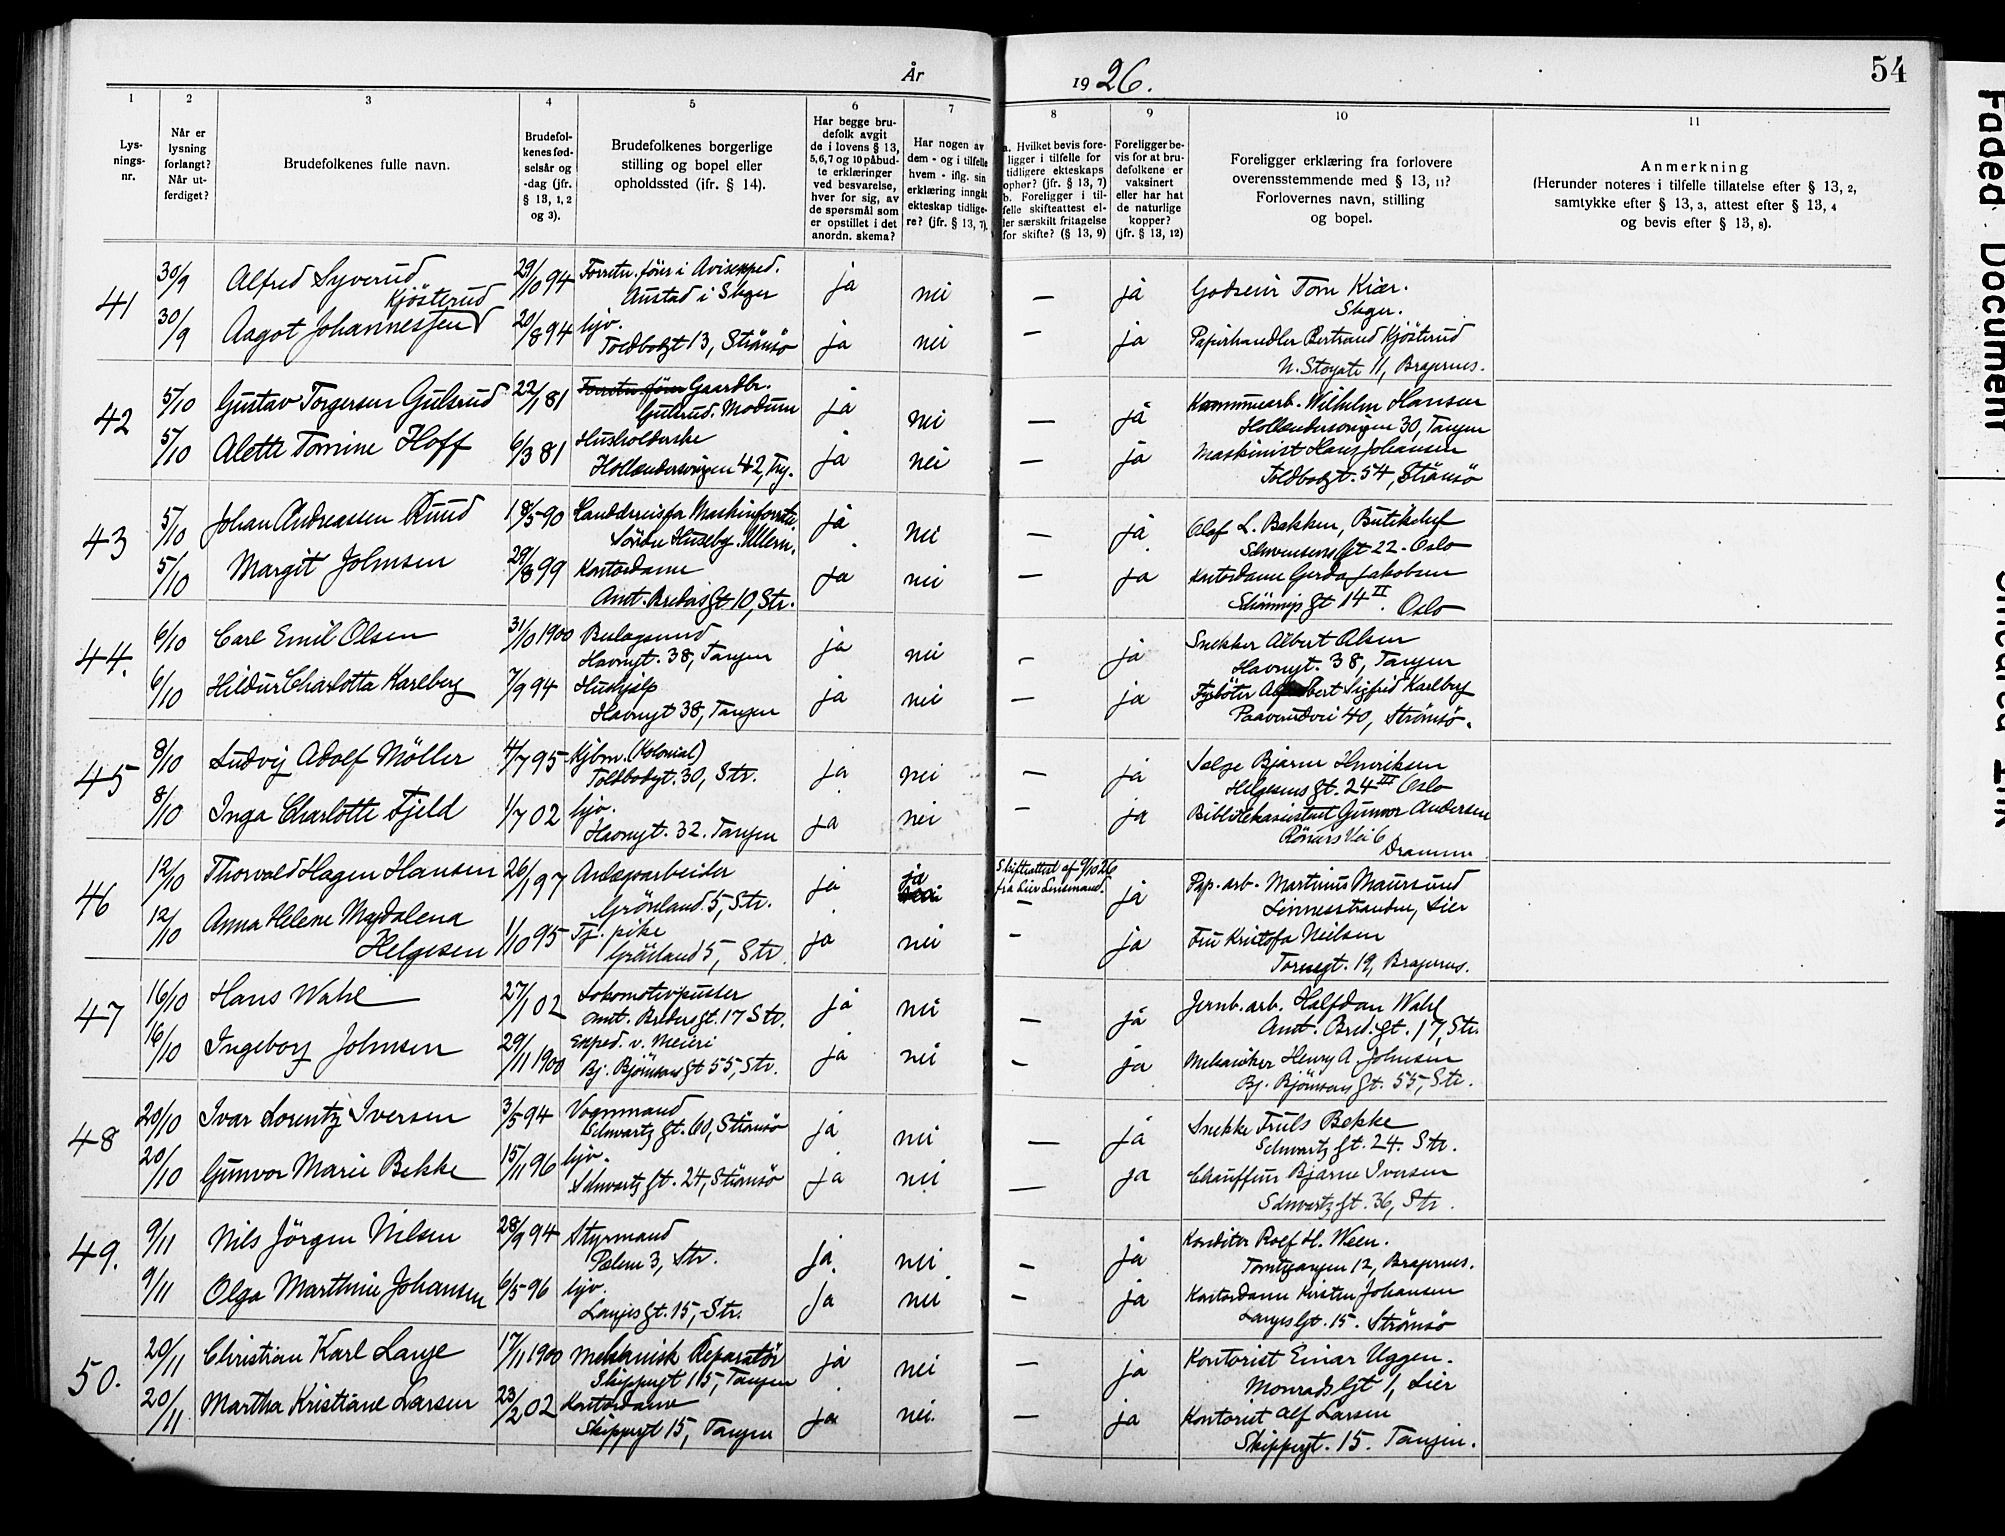 År 1926.
54
1 2 3 4 5 6 7 8 9 10 11
Lys-
nings-
nr.
Når er
lysning
forlangt?
Når ut-
ferdiget?
Brudefolkenes fulle navn.
Brudefol-
kenes fød-
selsår og
-dag (jfr.
§ 13, 1, 2
og 3).
Brudefolkenes borgerlige
stilling og bopel eller
opholdssted (jfr. § 14).
Har begge bru-
defolk avgit
de i lovens § 13,
5,6,7 og 10 påbud-
te erklæringer
ved besvarelse,
hver for sig, av
de spørsmål som
er opstillet i det
anordn. skema?
Har nogen av
dem - og i tilfelle
hvem - iflg. sin
erklæring inngåt
ekteskap tidlige-
re? (jfr. § 13, 7).
a. Hvilket bevis fore-
ligger i tilfelle for
tidligere ekteskaps
ophør? (jfr. § 13, 7)
b. Foreligger i til-
felle skifteattest el-
ler særskilt fritagelse
for skifte? (§ 13, 9)
Foreligger be-
vis for at bru-
defolkene er
vaksinert
eller har hat
de naturlige
kopper?
(jfr. § 13, 12)
Foreligger erklæring fra forlovere
overensstemmende med § 13, 11?
Forlovernes navn, stilling
og bopel.
Anmerkning
(Herunder noteres i tilfelle tillatelse efter § 13, 2,
samtykke efter § 13, 3, attest efter § 13, 4
og bevis efter § 13, 8).
41 30/9 Alfred Syverud 29/10 94 Forretn. fører i Avisexped. ja nei — ja Godseier Torn Kiær.
Austad i Skoger Skoger.
Kjösterud
30/9 Aagot Johannessen 20/8 94 hjv. ja nei — ja Papirhandler Bertrand Kjösterud
Toldbodgt 13, Strömsö N. Storgate 11, Bragernes.
42 5/10 Gustav Torgersen Gulsrud 22/1 81 Forretn. fører Gaardbr. ja nei — ja Kommunearb. Wilhelm Hansen
Gulsrud. Modum Hollendersvingen 30, Tangen
5/10 Alette Tomine Hoff 6/3 81 Husholderske ja nei — ja Maskinist Hans Johansen
Hollendersvingen 42, Tng. Toldbodgt. 54, Strömsö
43 5/10 Johan Andreassen Ruud 18/5 90 Landdreisfor Maskinforretn. ja nei — ja Olaf L. Bakken, Butikchef
Söndre Huseby. Ullern. Schwensens Gt 22 - Oslo
5/10 Margit Johnsen 29/8 99 Kontordame ja nei — ja Kontordame Gerda Jakobsen
Amt. Breders Gt 10, Str. Gt 14 II. Oslo
44. 6/10 Carl Emil Olsen 31/10 1900 ja nei — ja Snekker Albert Olsen
Havnegt. 38, Tangen Havnegt. 38, Tangen
6/10 Hildur Charlotta Karlberg 7/9 94 Hushjelp ja nei — ja Fyrböter Albert Sigfrid Karlberg
Havnegt 38, Tangen Paaverudvei 40, Strömsö.
45 8/10 Ludvig Adolf Möller 4/7 95 Kjbm. (Kolonial) ja nei — ja Selge Bjarne Henriksen
Toldbodgt. 30, Str. Helgesens Gt. 24 III Oslo
8/10 Inga Charlotte Fjeld 1/7 02 hjv. ja nei — ja Biblioteksassistent Gunvor Andersen
Havnegt. 32. Tangen Vei 6
Drammen
46 12/10 Thorvald Hagen Hansen 26/1 97 Anlægsarbeider ja ja nei Skifteattest af 9/10 26 ja Pap. arb. Martinus Maursund
fra Lier Lensmand. —
Grönland. 5, Str. Linnesstranden, Lier
12/10 Anna Helene Magdalena 1/10 95 Tj. pike ja nei — ja Fru Kristofa Nielsen
Helgesen Grönland 5, Str. Tornegt. 19, Bragernes.
47 16/10 Hans Wahl 27/1 02 Lokomotivpusser ja nei — ja Jernb. arb. Halfdan Wahl
Amt. Breders Gt. 17 Str. Amt. Bred. Gt. 17, Str.
16/10 Ingeborg Johnsen 29/11 1900 Exped. v. Meieri ja nei — ja Mekaniker Henry A. Johnsen
Bj. Björnsons Gt 55, Str. Bj. Björnsons Gt. 55, Str.
48 20/10 Ivar Lorentz Iversen 3/5 94 Vognmand ja nei — ja Snekker Truls Bekke
Schwartz Gt. 60, Strömsö Schwartz Gt. 24. Str.
20/10 Gunvor Marie Bekke 15/11 96 hjv. ja nei — ja Chauffeur Bjarne Iversen
Schwartz Gt. 24, Strömsö Schwartz Gt. 36, Str.
49. 9/11 Nils Jörgen Nilsen 28/9 94 Styrmand ja nei — ja Konditor Rolf H. Ween.
Pælen 3, Str. Tomtegangen 12, Bragernes.
9/11 Olga Marthine Johansen 6/5 96 hjv. ja nei — ja Kontordame Kirsten Johansen
Langes Gt. 15, Str. Langes Gt. 15. Strömsö
50. 20/11 Christian Karl Lange 17/11 1900 Mekanisk Reparatör ja nei — ja Kontorist Einar Uggen.
Skippergt 15, Tangen Monrads Gt 1, Lier
20/11 Martha Kristiane Larsen 23/2 02 Kontordame ja nei. — ja Kontorist Alf Larsen
Skippergt 15, Tangen Skippergt. 15. Tangen.
Faded Document
Smeared Ink